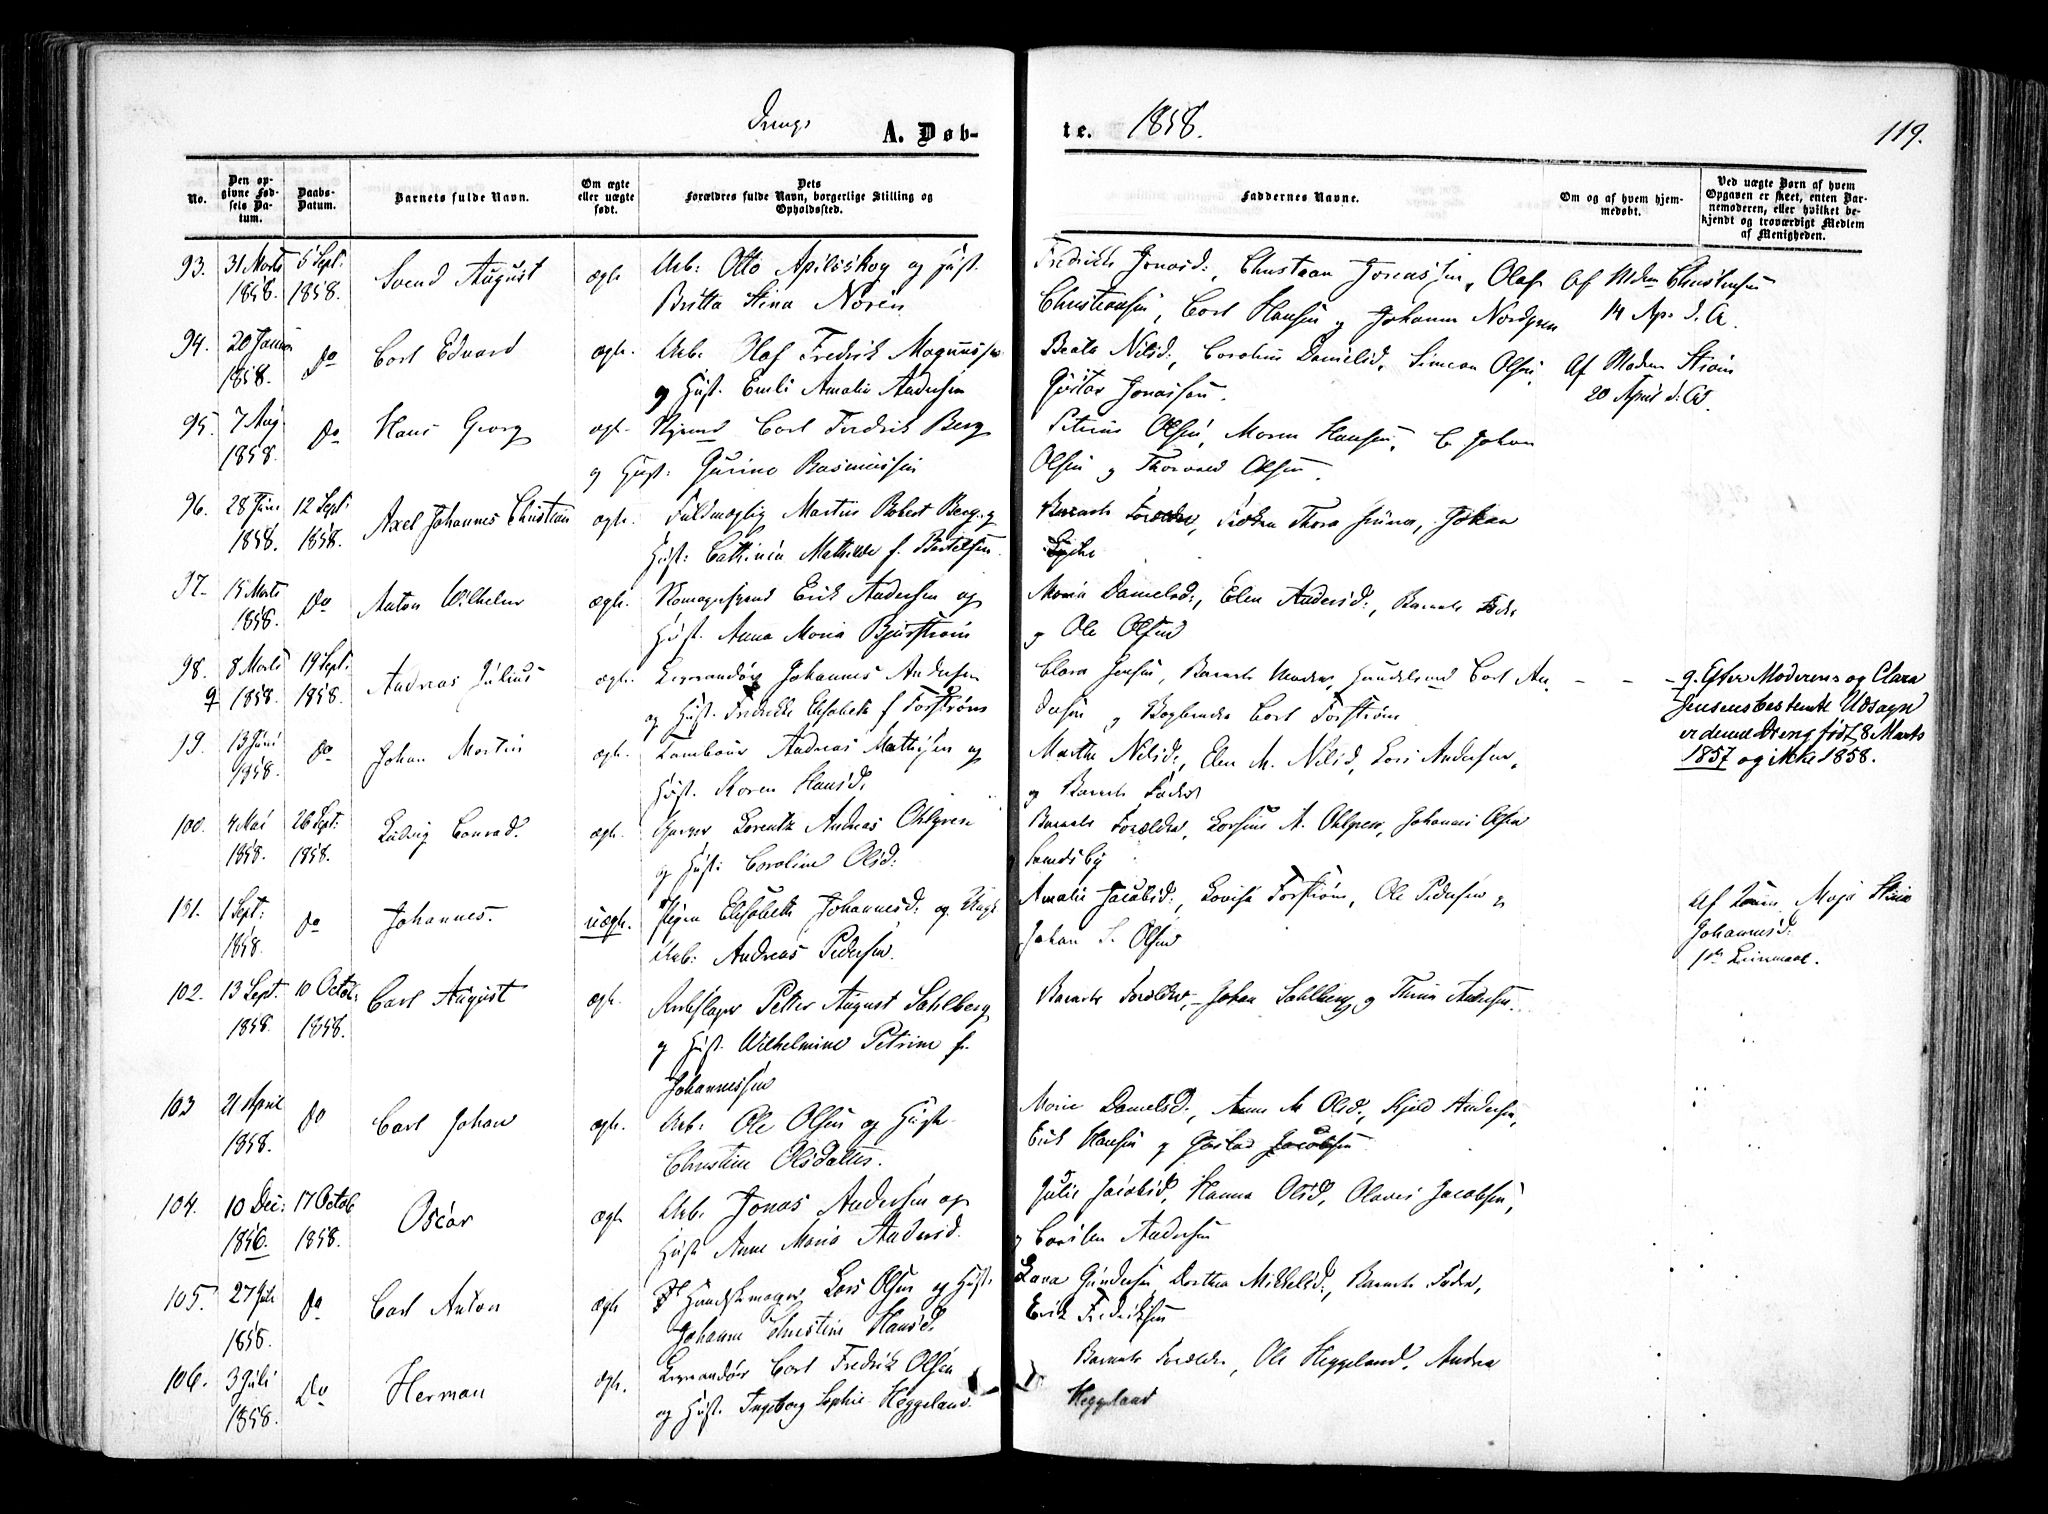 Drenge A. Døb- te. 1858. 119.
No.
Den op-
givne Fød-
sels Da-
tum.
Daabs-
Datum.
Barnets fulde Navn.
Om ægte
eller uægte
født.
Dets
Forældres fulde Navn, borgerlige Stilling og
Opholdssted.
Faddernes Navne.
Om og af hvem hjem-
medøbt.
Ved uægte Børn af hvem
Opgaven er skeet, enten Bar-
nemoderen, eller hvilket be-
kjendt og troværdigt Medlem
af Menigheden.
93. 31 Marts 5 Sept: Svend August ægte Arb: Otto Apilsskog og Hust. Fredrikke Jonasd:, Christian Jonassen, Olaf Af Mdm Christensen
1858. 1858. Britta Stina Norén Christiansen, Carl Hansen og Johannes Nordgren 14 Apr. d. A.
94. 20 Januar Do Carl Edvard ægte. Arb. Olaf Fredrik Magnussen Beate Nilsd:, Caroline Danielsd, Simeon Olsen, Af Madm Strøm
1858. og Hust. Emli Amalie Andersen Gustav Jonassen. 20 April d: A.
95. 7 Aug Do Hans Georg ægte. Carl Fredrik Berg Petrine Olsen, Maren Hansen, C. Johan
1858. og Hust: Gurine Rasmussen Olsen og Thorvald Olsen.
96. 28 Juni 12 Sept. Axel Johannes Christian ægte. Fuldmægtig Martin Robert Berg og Barnets Forældre, Frøken Thora, Johan
1858. 1858. Hust: Cathinca Mathilde f. Bertelsen
97. 15 Marts Do Anton Wilhelm ægte. Erik Andersen og Maria Danielsd:, Elen Andersd:, Barnets Fader
1858. Hust. Anna Maria Bjurstrøm og Ole Olsen
98. 8 Marts 19 Sept: Andreas Julius ægte. Leverandør Johannes Andersen Clara Jensen, Barnets Moder, Carl An- - - - q. Efter Moderens og Clara
q 1858. 1858. og Hust. Fredrikke Elisabeth f Forstrøm dersen og Bogbinder Carl Forstrøm Jensens bestemte Udsagn
er denne Dreng født 8 Marts
1857 og ikke 1858.
19. 13 Juni Do Johan Martin ægte. Tambour Andreas Mathisen og Marthe Nilsd:, Elen M. Nilsd, Lars Andersen,
1858. Hust. Maren Hansd. og Barnets Fader
100. 4 Mai 26 Sept: Ludvig Conrad. ægte. Garver Lorentz Andreas Ohlgren Barnets Forældre, A. Ohlgren, Johannes Olsen
1858. 1858. og Hust: Caroline Olsd: Sandsby
101. 1 Sept: Do Johannes. uægte. Pigen Elisabeth Johannesd: og Ungk. Amalie Jacobsd:, Lovise Forstrøm, Ole Pedersen og Af Maja Stina
1858. Arb: Andreas Pedersen. Johan S. Olsen Johannesd:
102. 13 Sept. 10 Octob: Carl August ægte. Rebslager Petter August Sahlberg Barnets Forældre, Johan Sahlberg og Thrine Andersen.
1858. 1858. og Hust. Wilhelmine Petrine f.
Johannessen
103 21 April Do Carl Johan ægte. Arb: Ole Olsen og Hustr. Marie Danielsd:, Anne M. Olsd:, Kjeld Andersen,
1858. Christine Olsdatter. Erik Hansen og Gustav Jacobsen
104. 10 Dec: 17 Octob Oscar ægte Arb. Jonas Andersen og Julie Jacobsd, Hanna Olsd, Olaves Jacobsen,
1856. 1858. Hust Anne Maria Andersd. og Andersen
105. 27 Juli Do Carl Anton ægte Handskemager Lars Olsen og Hust. Lava Gundersen Dorthea Mikkelsd:, Barnets Fader,
1858. Johanne Christine Hansd. Erik Fredriksen
106. 3 Juli Do Herman ægte. Leverandør Carl Fredrik Olsen Barnets Forældre, Ole Heggeland, Andrea
1858. og Hust. Ingeborg Sophie Heggeland. Heggeland